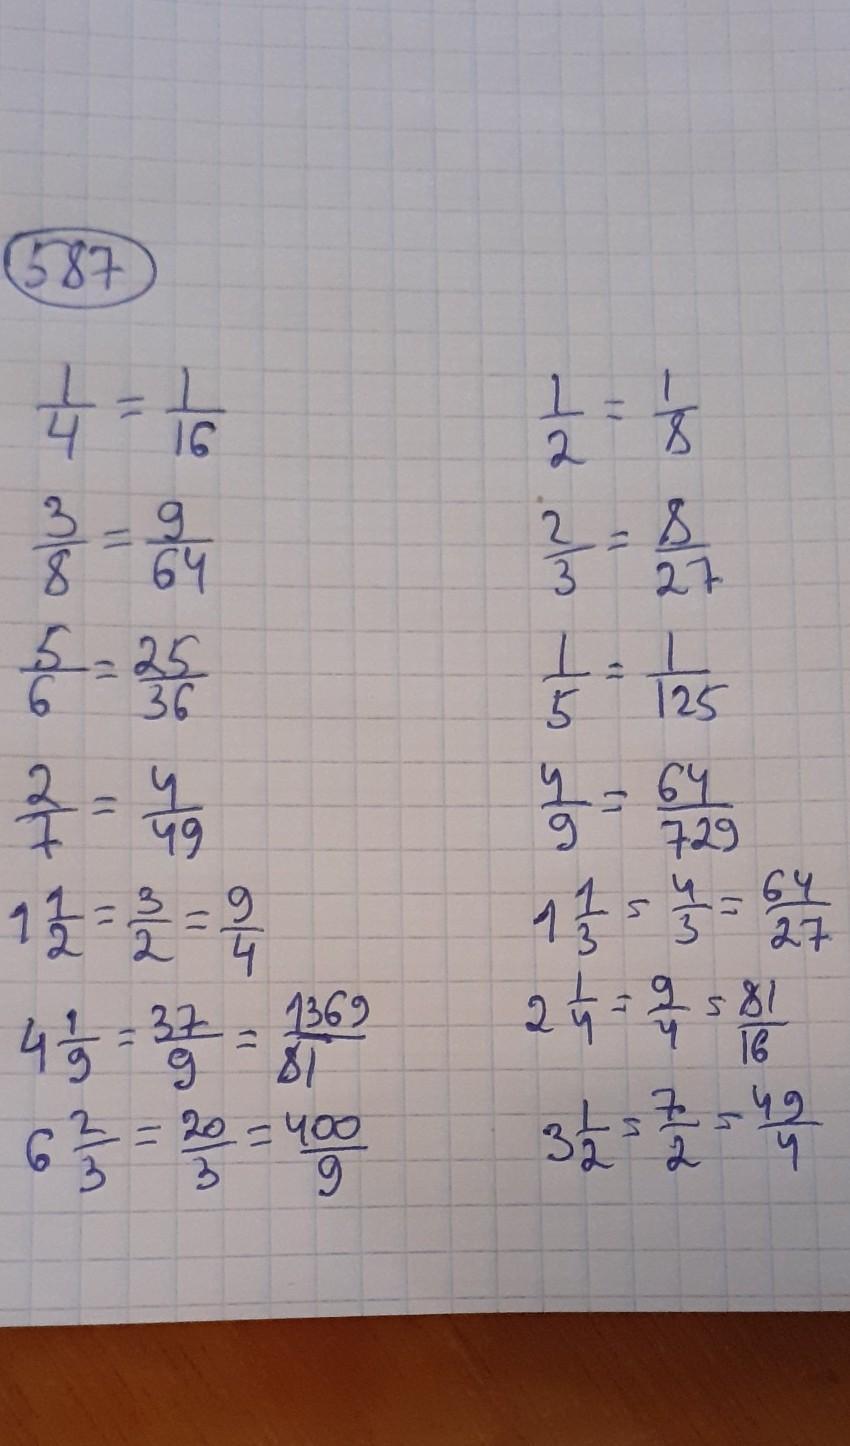 587
1/4 = 1/16
3/8 = 9/64
5/6 = 25/36
2/7 = 4/49
1 1/2 = 3/2 = 9/4
4 1/9 = 37/9 = 1369/81
6 2/3 = 20/3 = 400/9
1/2 = 1/8
2/3 = 8/27
1/5 = 1/125
4/9 = 64/729
1 1/3 = 4/3 = 64/27
2 1/4 = 9/4 = 81/16
3 1/2 = 7/2 = 49/4